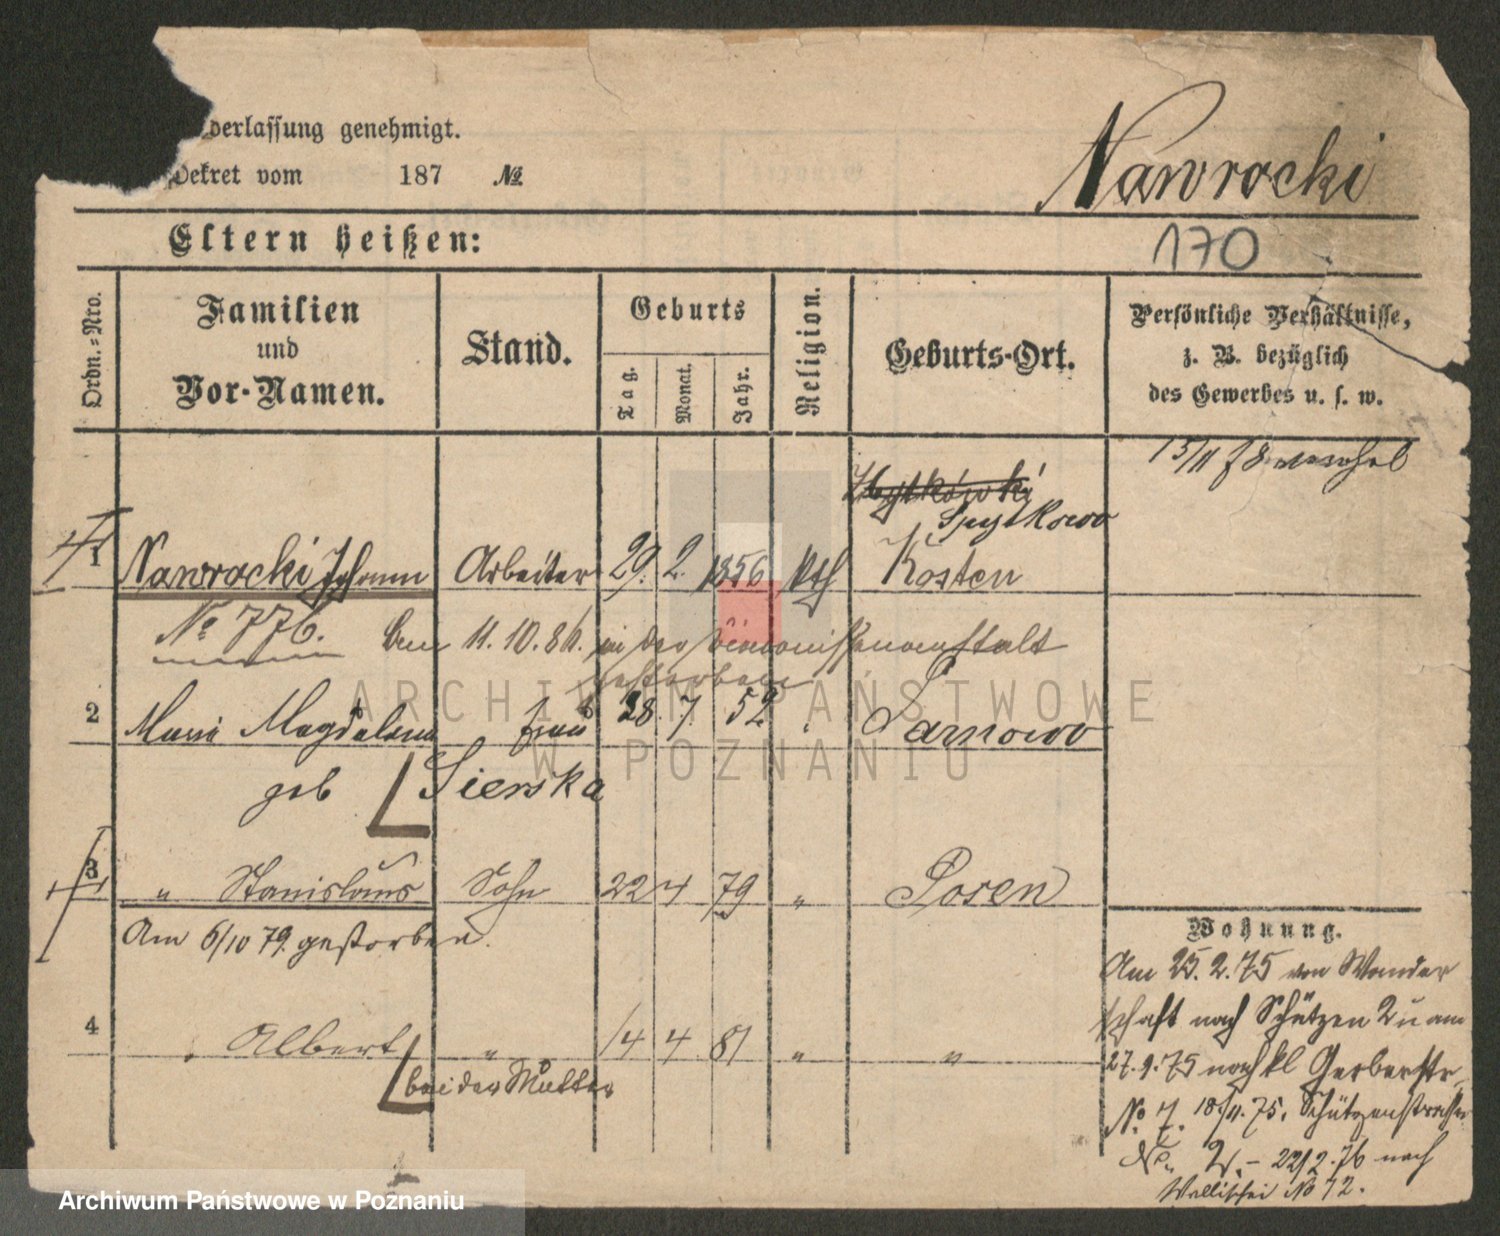 derlassung genehmigt.
Dekret vom 187 №
Nawrocki
Eltern heißen:
170
Ordn.=Nro.
Familien
und
Vor-Namen.
Stand.
Geburts
Tag.
Monat.
Jahr.
Religion.
Geburts-Ort.
Persönliche Verhältnisse,
z. B. bezüglich
des Gewerbes u. s. w.
15/11 78
Spytkowo
1 Nawrocki Johann Arbeiter 29. 2. 1856 kth Kosten
№ 776. den 11. 10. 86. in der Diakonissenanstalt
gestorben
2 Marie Magdalena Frau 28. 7. 52 Tarnowo
geb Sierska
3 " Stanislaus Sohn 22 4 79 " Posen
Am 6/10 79. gestorben.
4 " Albert " 14 4 81 " "
bei der Mutter
Wohnung.
Am 25. 2. 75 von Wander
schaft nach Schützen 2 u am
27. 9. 75 nach kl Gerberstr
No 7. 18/11. 75. Schützenstrasse
No 2. – 22/2. 76 nach
Wallischei No 72.
ARCHIWUM PAŃSTWOWE
W POZNANIU
Archiwum Państwowe w Poznaniu